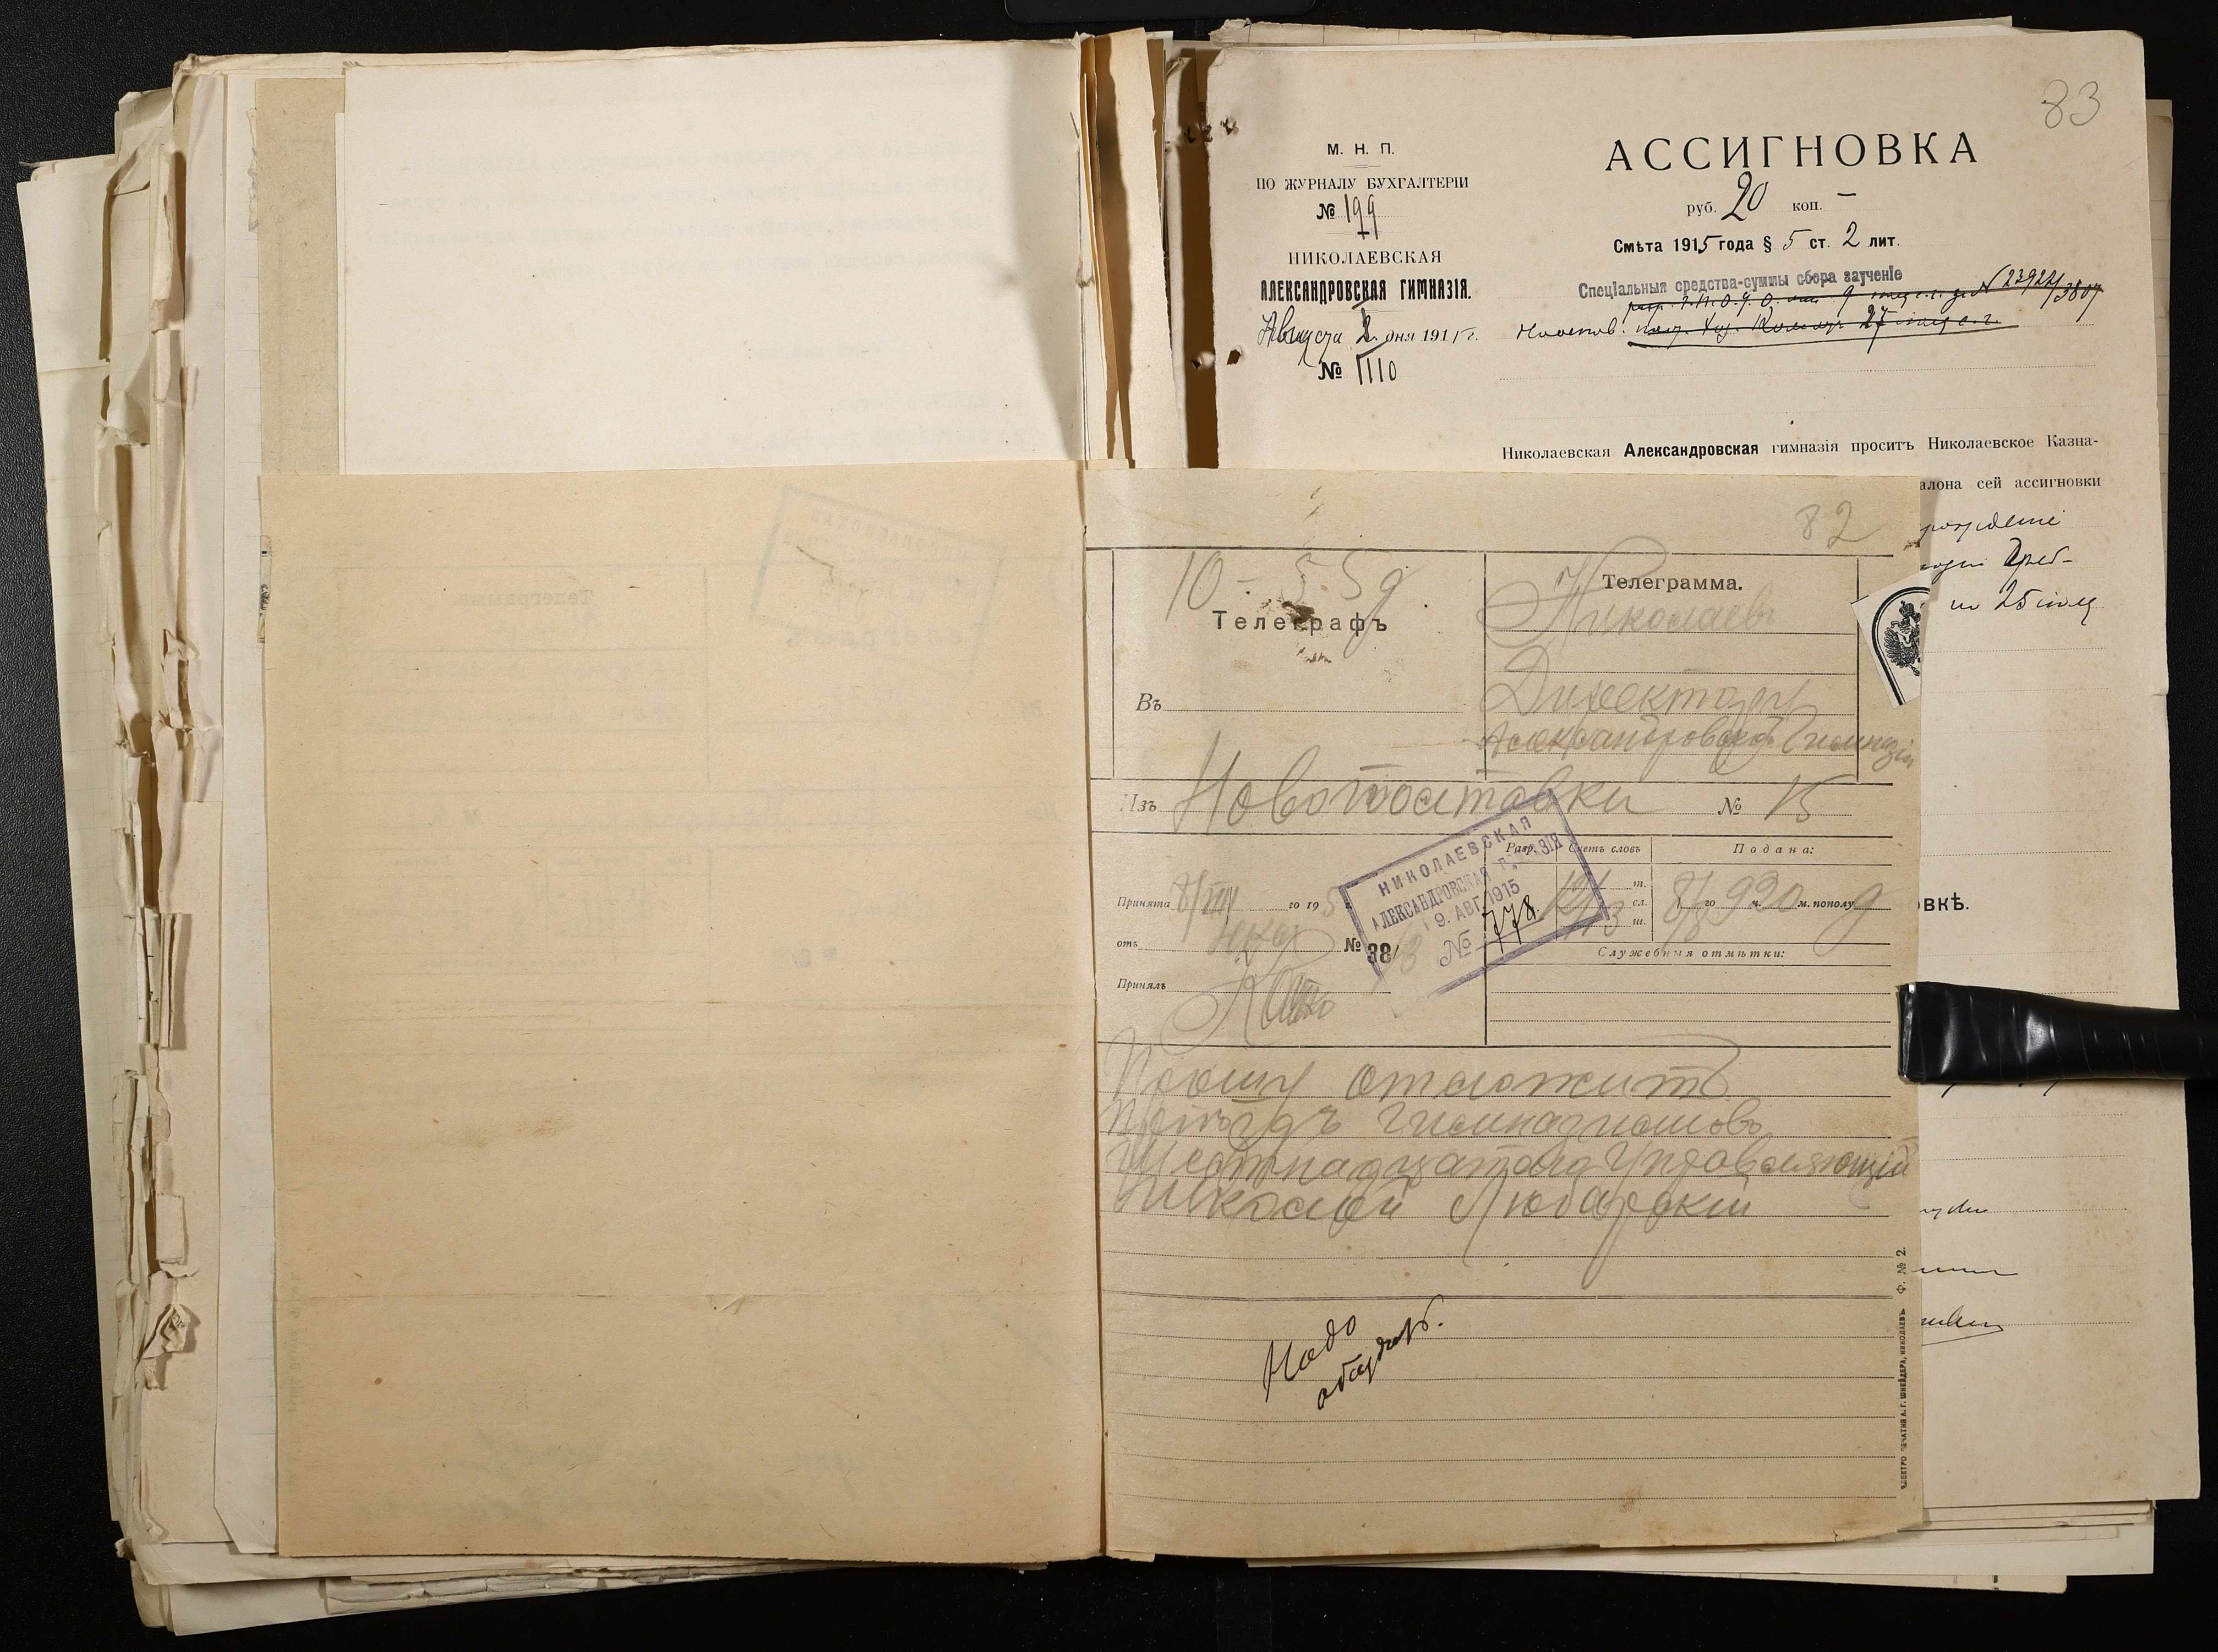 83
М. Н. П.
ПО ЖУРНАЛУ БУХГАЛТЕРІИ
№ 199
НИКОЛАЕВСКАЯ
АЛЕКСАНДРОВСКАЯ ГИМНАЗІЯ.
Августа 8 дня 1915 г.
№ 1110
АССИГНОВКА
руб. 20 коп. —
Смѣта 1915 года § 5 ст. 2 лит.
Спеціальныя средства-суммы сбора заученіе
№ 23924/3807
27
Николаевская Александровская гимназія проситъ Николаевское Казна-
алона сей ассигновки
25
овкѣ.
82
10 - 5 59
Телеграфъ
Въ
Телеграмма.
Николаевъ
Директору
Александровской Гимназіи
Изъ Новополтавки № 15
Принята 8/VIII го 195
отъ № 38
Принялъ
НИКОЛАЕВСКАЯ
АЛЕКСАНДРОВСКАЯ ГИМНАЗІЯ
9. АВГ. 1915
№ 778
Разр. Счетъ словъ
т.
сл.
ш.
12/13
Подана:
8/го 9 ч. 30 м. пополу д
Служебныя отмѣтки:
Прошу отложить
пріѣздъ гимназистовъ
Шестнадцатаго Управляющій
Николай Любарскій
Надо
обождать.
ЭЛЕКТРО-ПЕЧАТНЯ А. Г. ШНЕЙДЕРА, НИКОЛАЕВЪ Ф. № 2.